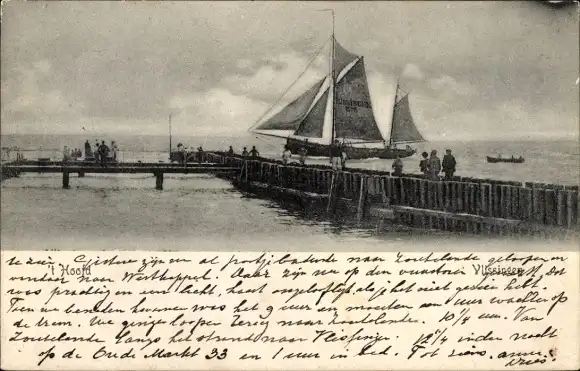 't Hoofd
Vlissingen
zijn we al pootjebadende naar Zoutelande geloopen en
vandaar naar Westkappel. Daar zijn we op den vuurtoren Dat
was prachtig en veel licht, heast ongelooflijk als je het niet gezien hebt.
Toen we beneden kwamen was het 9 uur en moesten een uur wachten op
de trem. We gingen loopen terug naar Zoutelande. 10¾ uur. Van
Zoutelande langs het strand naar Vlissingen. 12¾ in den nacht
op de Oude Markt 33 en 1 uur in bed. Tot ziens,
Dries.